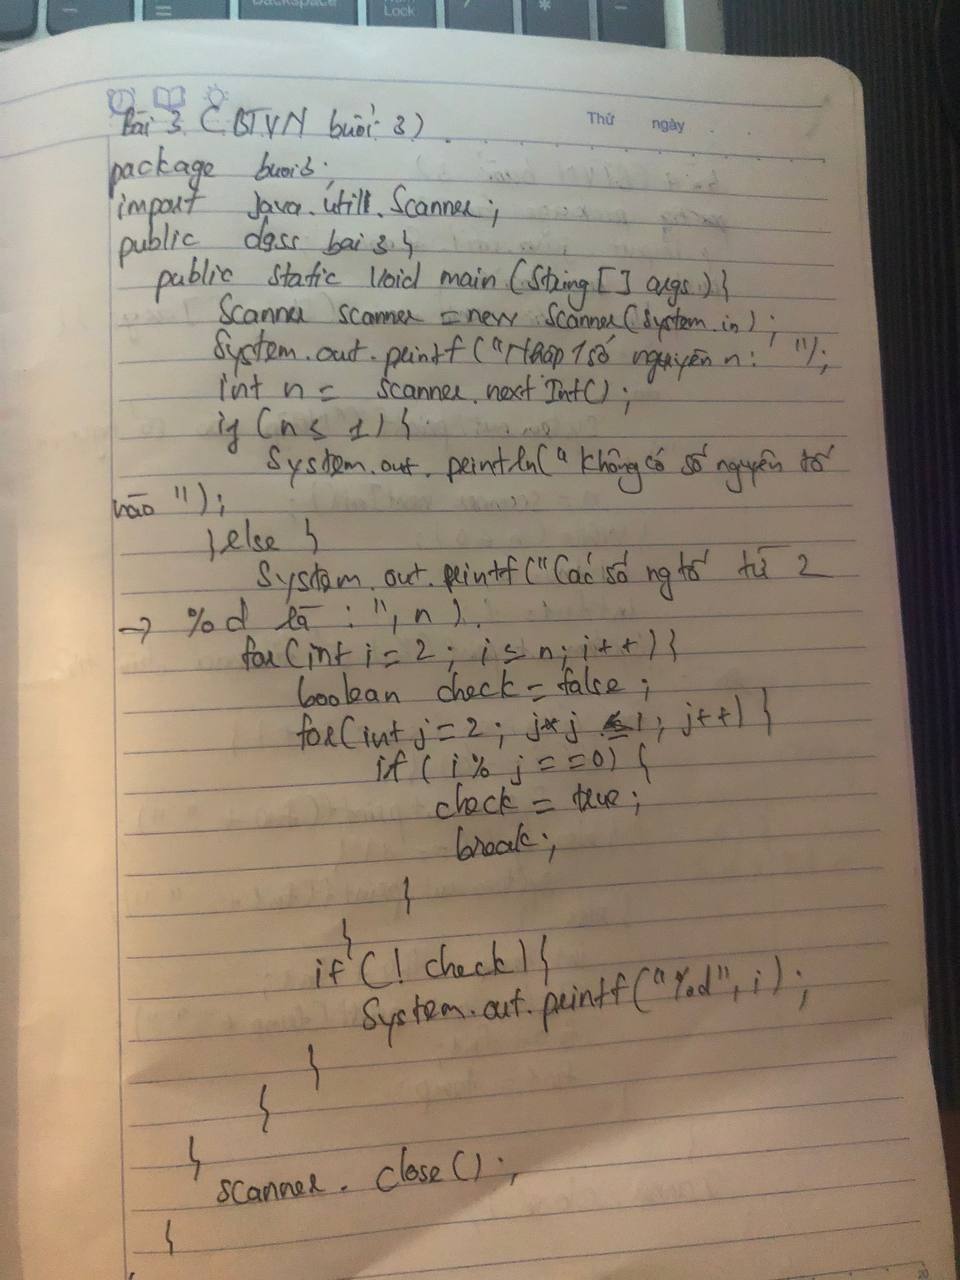 Backspace
Num
Lock
Bài 3 (BTVN buổi 3)
Thứ ngày
package buoi3;
import Java.utill.Scanner;
public class bai 3 {
public static void main (String [] args) {
Scanner scanner = new Scanner(System.in);
System.out.printf("Nhập 1 số nguyên n: ");
int n = scanner.nextInt();
if (n ≤ 1) {
System.out.println(" không có số nguyên tố
nào ");
} else {
System.out.printf("Các số ng tố từ 2
→ %d là : ", n).
for(int i = 2; i ≤ n; i++) {
boolean check = false;
for(int j = 2; j*j ≤ i; j++) {
if ( i % j == 0) {
check = true;
break;
}
}
if (! check) {
System.out.printf("%d", i);
}
}
}
scanner.close();
}